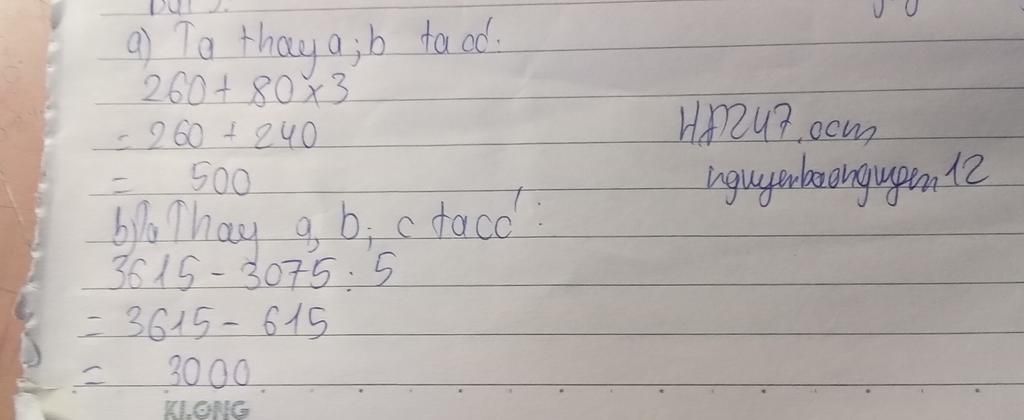 a) Ta thay a; b ta có:
260 + 80 x 3
= 260 + 240
= 500
HĐ247.ocm
nguyenbaonguyen12
b) Ta Thay a, b; c ta có:
3615 - 3075 : 5
= 3615 - 615
= 3000
KLONG